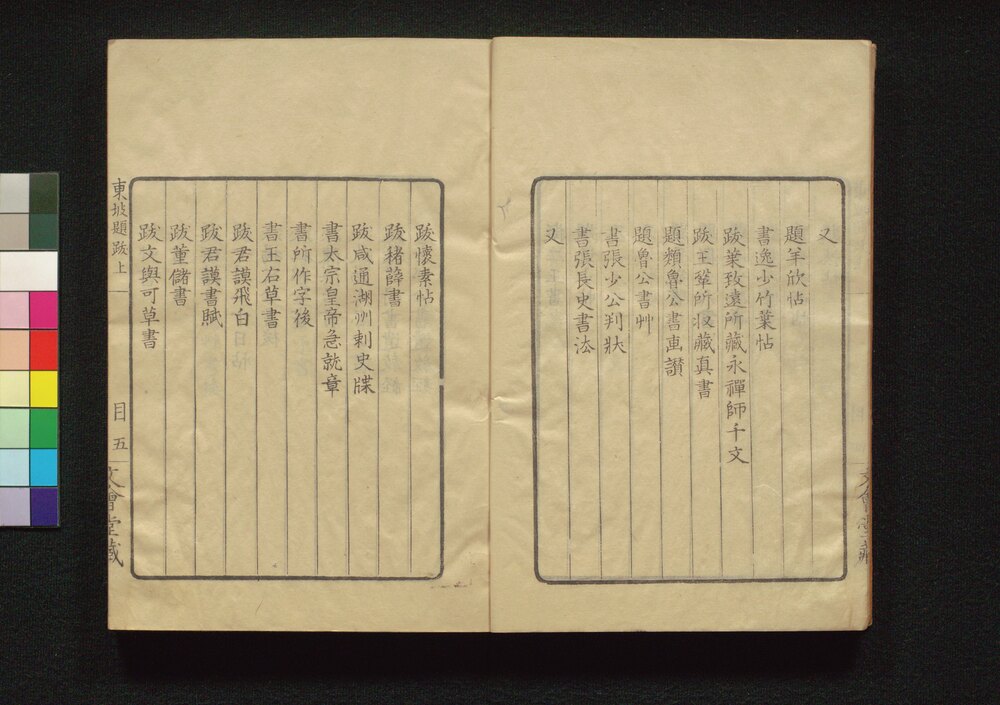 又
題羊欣帖
書逸少竹葉帖
跋葉致遠所藏永禪師千文
跋王鞏所收藏真書
題顏魯公書画讃
題魯公書艸
書張少公判狀
書張長史書法
又
文會堂藏
跋懷素帖
跋褚薛書
跋咸通湖州刺史牒
書太宗皇帝急就章
書所作字後
書王右草書
跋君謨飛白
跋君謨書賦
跋董儲書
跋文與可草書
東坡題跋上
目五
文會堂藏